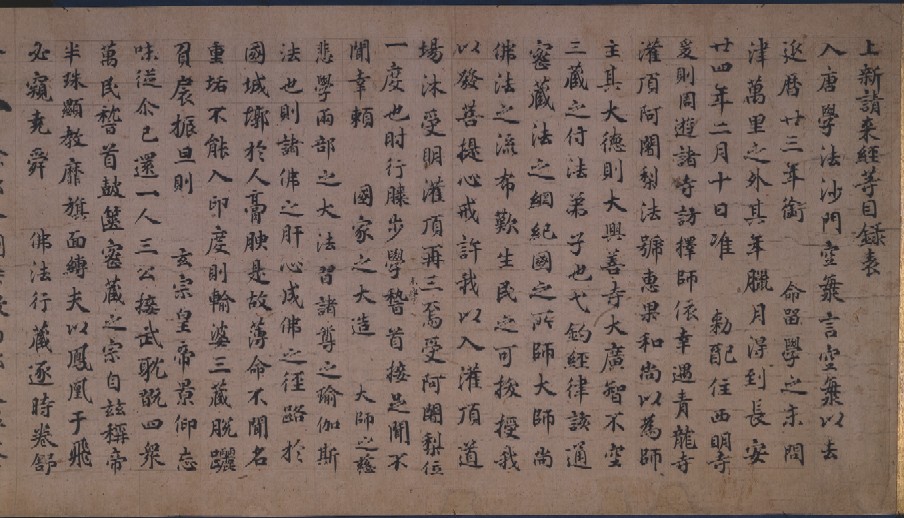 上新請来經等目録表
入唐學法沙門空海言空海以去
延暦廿三年銜　命留學之末問
津萬里之外其年臘月得到長安
廿四年二月十日准　勅配住西明寺
爰則周遊諸寺訪擇師依幸遇青龍寺
灌頂阿闍梨法號惠果和尚以為師
主其大德則大興善寺大廣智不空
三藏之付法弟子也弋釣經律該通
密藏法之綱紀國之所師大師尚
佛法之流布歎生民之可拔授我
以發菩提心戒許我以入灌頂道
場沐受明灌頂再三焉受阿闍梨位
一度也肘行膝步學未學稽首接足聞不
聞幸賴　國家之大造　大師之慈
悲學兩部之大法習諸尊之瑜伽斯
法也則諸佛之肝心成佛之徑路於
國城墎於人膏腴是故薄命不聞名
重垢不能入印度則輸婆三藏脱躧
負扆振旦則　玄宗皇帝景仰忘
味從尒已還一人三公接武耽翫四衆
萬民稽首鼓篋密藏之宗自茲稱帝
半珠顯教靡旗面縛夫以鳳凰于飛
必窺堯舜　佛法行藏逐時卷舒